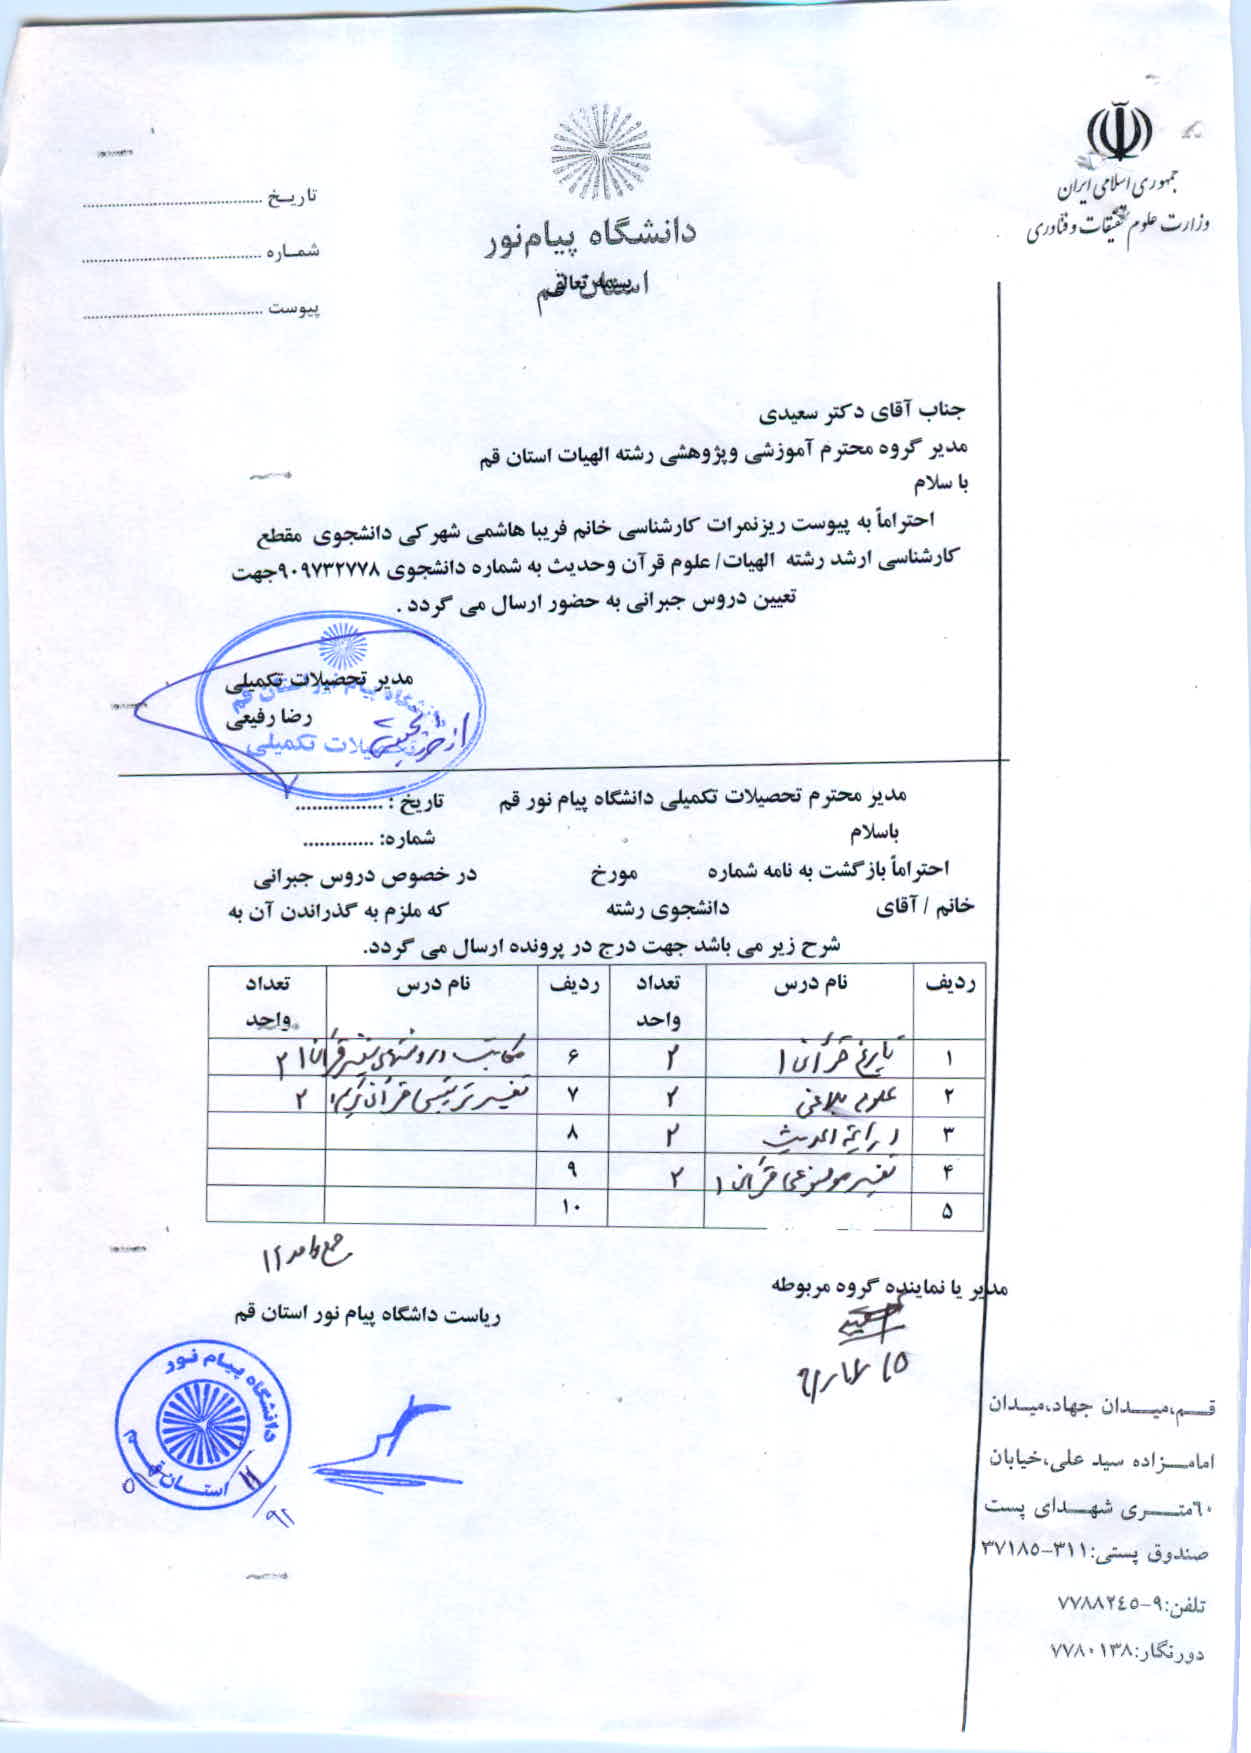 جمهوری اسلامی ایران
وزارت علوم تحقیقات و فناوری
دانشگاه پیام‌نور
استان قم
بسمه تعالی
تاریـخ ........................................
شمـاره ........................................
پیوست ........................................
جناب آقای دکتر سعیدی
مدیر گروه محترم آموزشی وپژوهشی رشته الهیات استان قم
با سلام
احتراماً به پیوست ریزنمرات کارشناسی خانم فریبا هاشمی شهرکی دانشجوی مقطع
کارشناسی ارشد رشته الهیات/ علوم قرآن وحدیث به شماره دانشجوی ۹۰۹۷۳۲۷۷۸جهت
تعیین دروس جبرانی به حضور ارسال می گردد .
مدیر تحصیلات تکمیلی
رضا رفیعی
دانشگاه پیام نور استان قم
تحصیلات تکمیلی
مدیر محترم تحصیلات تکمیلی دانشگاه پیام نور قم تاریخ : ................
باسلام شماره: .............
احتراماً بازگشت به نامه شماره مورخ در خصوص دروس جبرانی
خانم / آقای دانشجوی رشته که ملزم به گذراندن آن به
شرح زیر می باشد جهت درج در پرونده ارسال می گردد.
ردیف نام درس تعداد واحد ردیف نام درس تعداد واحد
۱ تاریخ قرآن ۱ ۲ ۶ مکاتب و روشهای تفسیر قرآن ۱ ۲
۲ علوم بلاغی ۲ ۷ تفسیر ترتیبی قرآن کریم ۱ ۲
۳ درایة الحدیث ۲ ۸
۴ تفسیر موضوعی قرآن ۱ ۲ ۹
۵ ۱۰
جمع واحد ۱۲
مدیر یا نماینده گروه مربوطه
ریاست داشگاه پیام نور استان قم
دانشگاه پیام نور
استـان قم
قـــم،میـــدان جهاد،میـدان
امامـــزاده سید علی،خیابان
٦٠متـــری شهـــدای پست
صندوق پستی:۳۱۱-۳۷۱۸۵
تلفن:۹-۷۷۸۸۲٤۵
دورنگار:۷۷۸۰۱۳۸